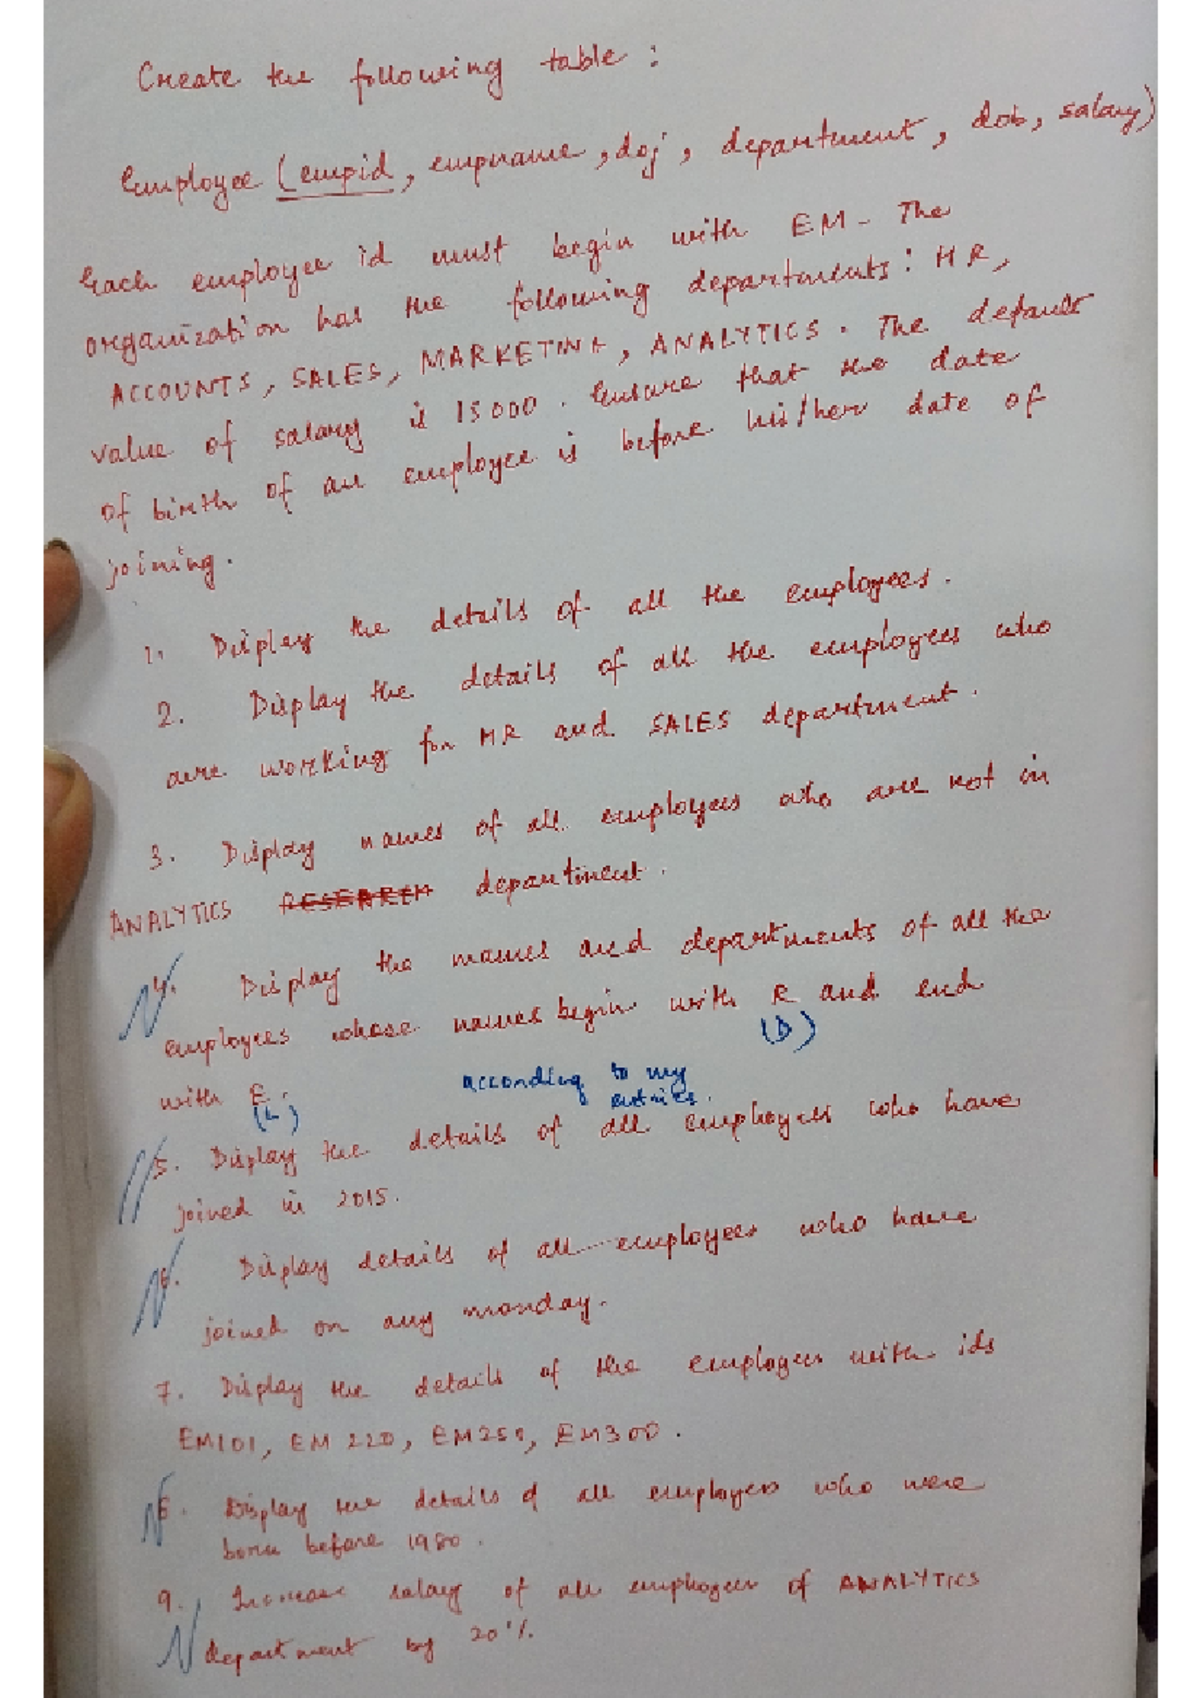 Create the following table :
Employee (empid, empname, doj, department, dob, salary)
Each employee id must begin with EM - The
organization has the following departments : HR,
ACCOUNTS, SALES, MARKETING, ANALYTICS. The default
value of salary is 15000. Ensure that the date
of birth of an employee is before his/her date of
joining.
1. Display the details of all the employees.
2. Display the details of all the employees who
are working for HR and SALES department.
3. Display names of all employees who are not in
ANALYTICS RESEARCH department.
4. Display the names and departments of all the
employees whose names begin with R and end
(D)
with E.
(L)
according to my
entries.
5. Display the details of all employees who have
joined in 2015.
6. Display details of all employees who have
joined on any monday.
7. Display the details of the employees with ids
EM101, EM 220, EM250, EM300.
8. Display the details of all employees who were
born before 1980.
9. Increase salary of all employees of ANALYTICS
department by 20%.